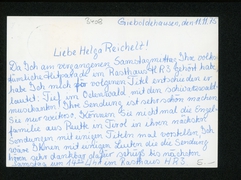 8408 Grieboldehausen, den 11.11.75
Liebe Helga Reichelt!
Da ich am vergangenen Samstagmittag Ihre volks-
tümliche Hitparade im Rasthaus HR3 gehört habe,
habe ich mich für folgenen Titel entschieden er
lautet: Tief im Odenwald mit den
musikanten. Ihre Sendung ist sehr schön machen
Sie nur weiter. Können Sie nicht mal die Engel-
familie aus Reutte in Tirol in ihren nächsten
Sendungen mit einigen Titeln mal vorstellen. Ich
wäre Ihnen mit einigen Leuten die die Sendung
hören sehr dankbar dafür
Samstag um 14 Uhr im Rasthaus HR3. E.